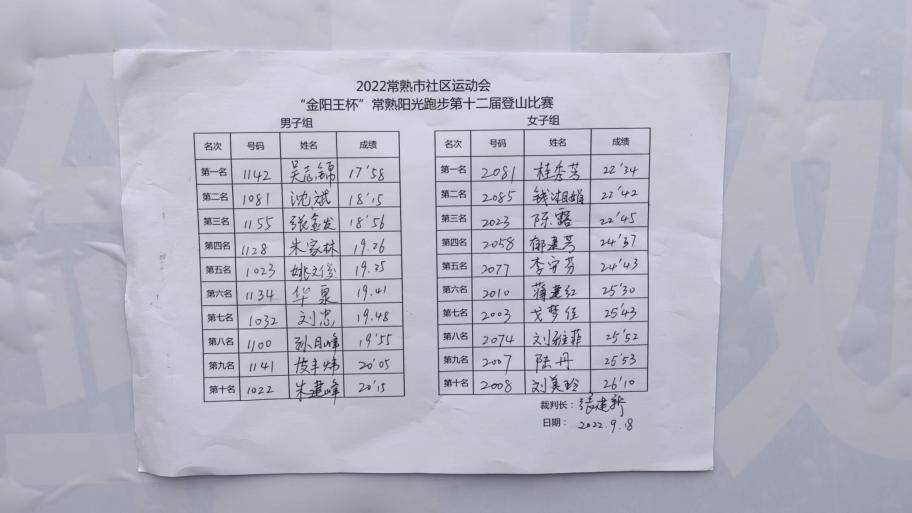 2022常熟市社区运动会
“金阳王杯”常熟阳光跑步第十二届登山比赛
男子组
名次 号码 姓名 成绩
第一名 1142 吴志锦 17'58
第二名 1081 沈斌 18'15
第三名 1155 张金发 18'56
第四名 1128 朱家林 19.26
第五名 1023 姚文俊 19.35
第六名 1134 华泉 19.41
第七名 1032 刘忠 19.48
第八名 1100 孙月峰 19'55
第九名 1141 20'05
第十名 1022 朱建峰 20'15
女子组
名次 号码 姓名 成绩
第一名 2081 桂秀芳 22'34
第二名 2085 钱湘娟 22'42
第三名 2023 陈露 22'45
第四名 2058 郁建芳 24'37
第五名 2077 李守芬 24'43
第六名 2010 蒋建红 25'30
第七名 2003 戈梦佳 25'43
第八名 2074 刘雅菲 25'52
第九名 2007 陆丹 25'53
第十名 2008 刘美玲 26'10
裁判长：张建新
日期：2022.9.18